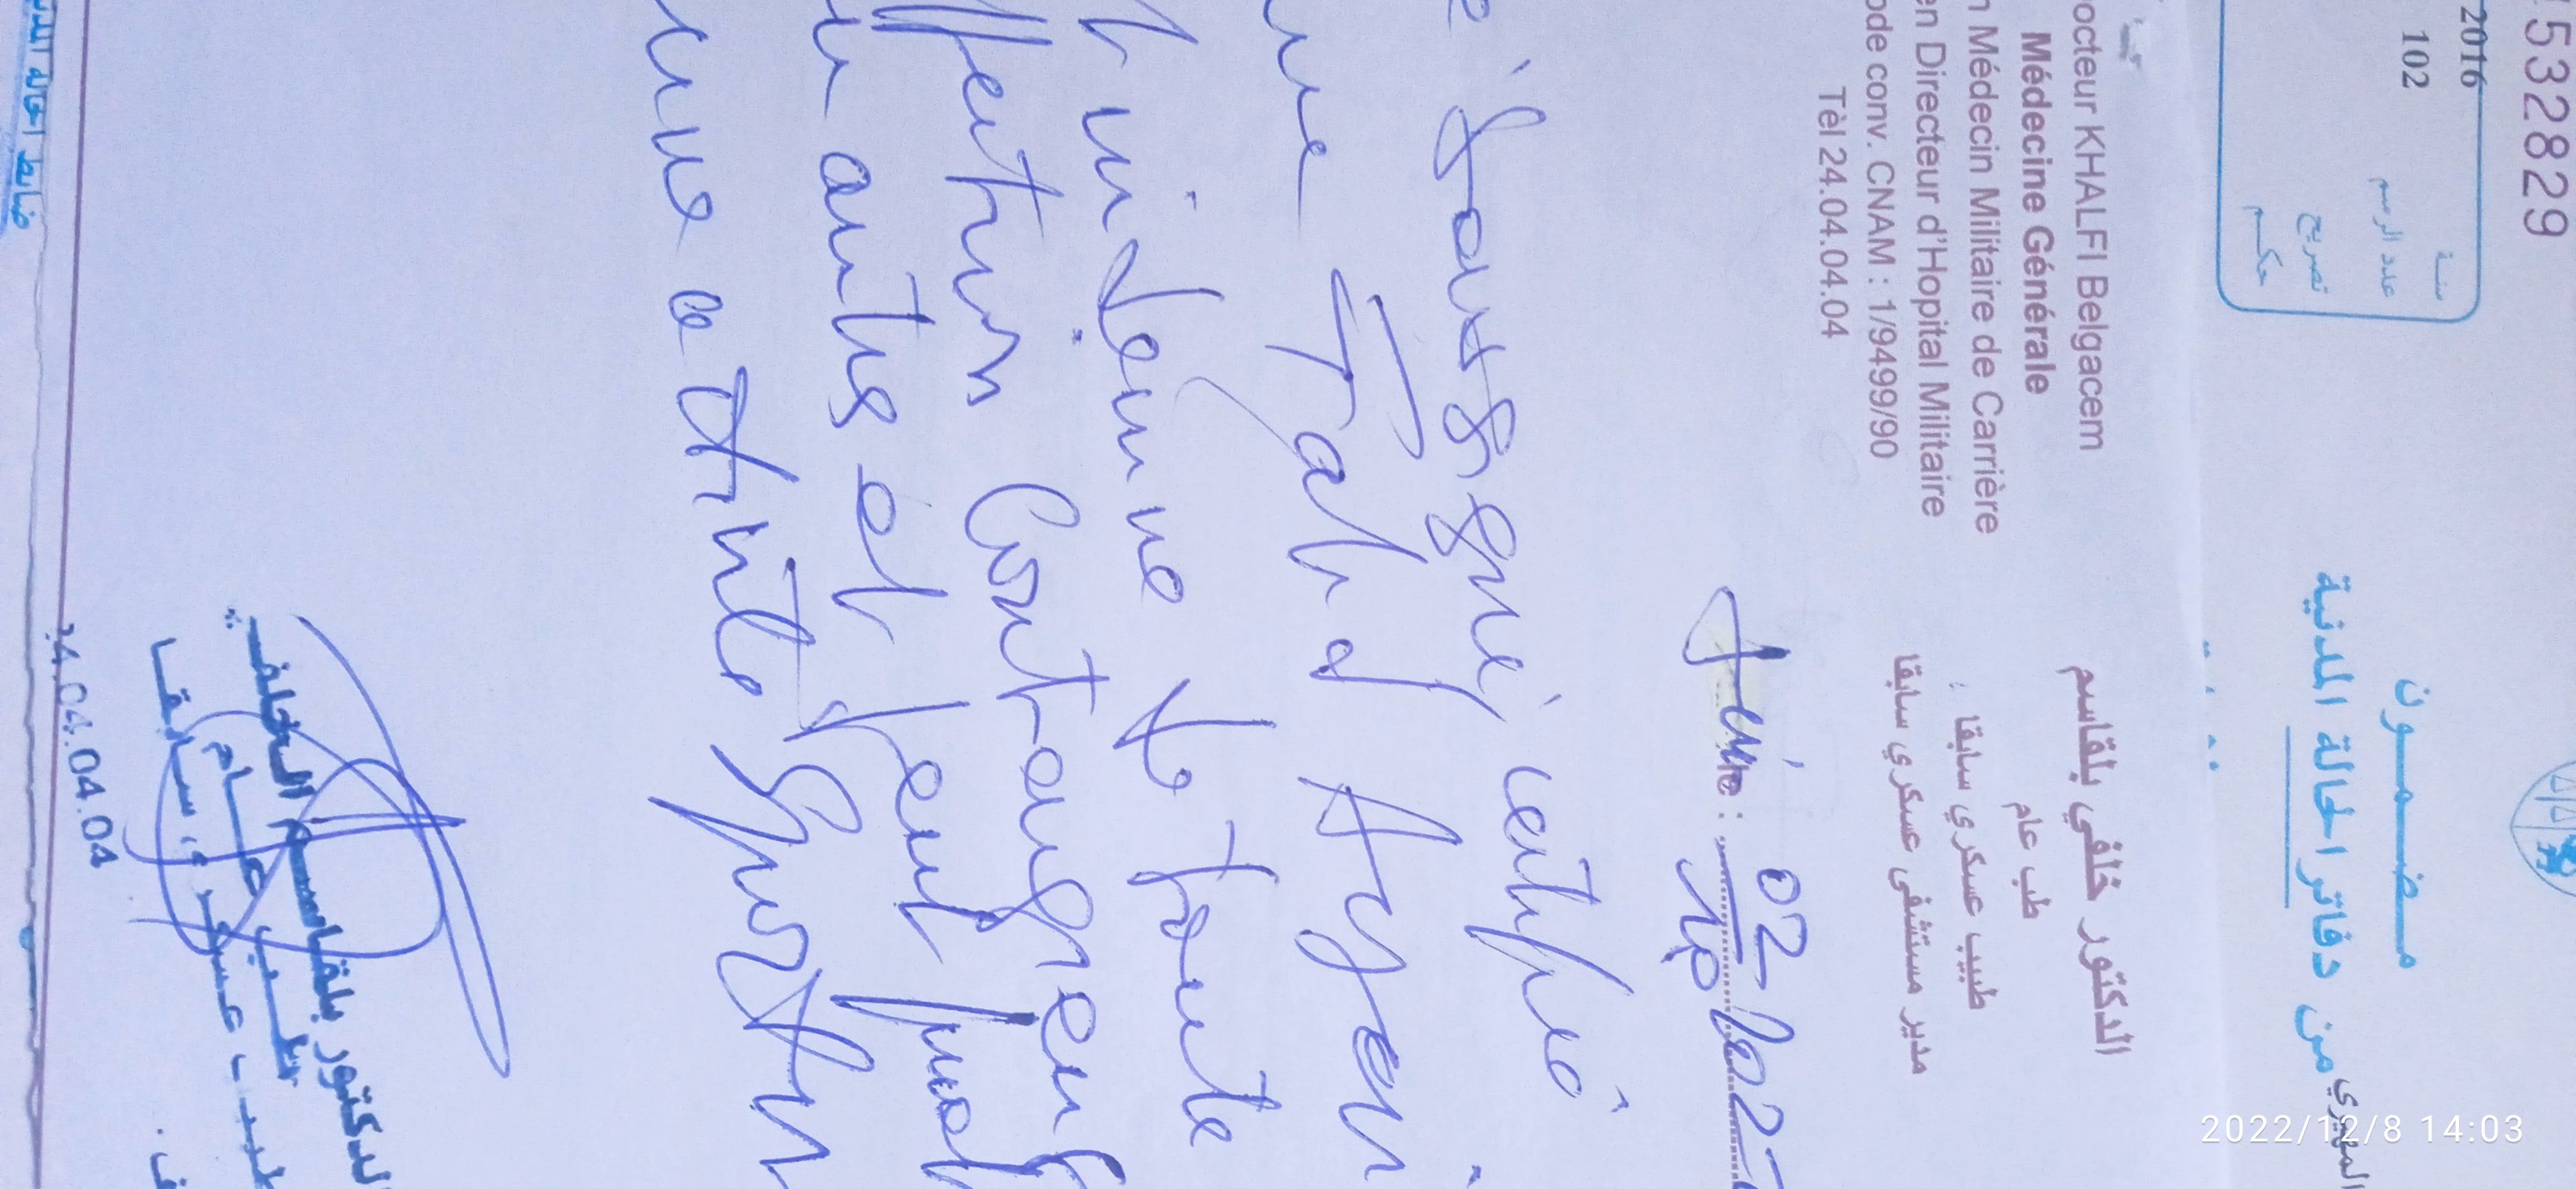 532829
2016
102
سنة
عدد الرسم
تصريح
حكم
مضمون
من دفاتر الحالة المدنية
octeur KHALFI Belgacem
Médecine Générale
n Médecin Militaire de Carrière
en Directeur d'Hopital Militaire
ode conv. CNAM : 1/9499/90
Tèl 24.04.04.04
الدكتور خلفي بلقاسم
طب عام
طبيب عسكري سابقا
مدير مستشفى عسكري سابقا
02
10 2022
soussigné, certifié
indemne de toute
ffection contagieus
autres et peut
une activité sportiv
الدكتور بلقاسم الخلفي
طبيب عام
24.04.04.04
ضابط الحالة المدنية
2022/12/8 14:03